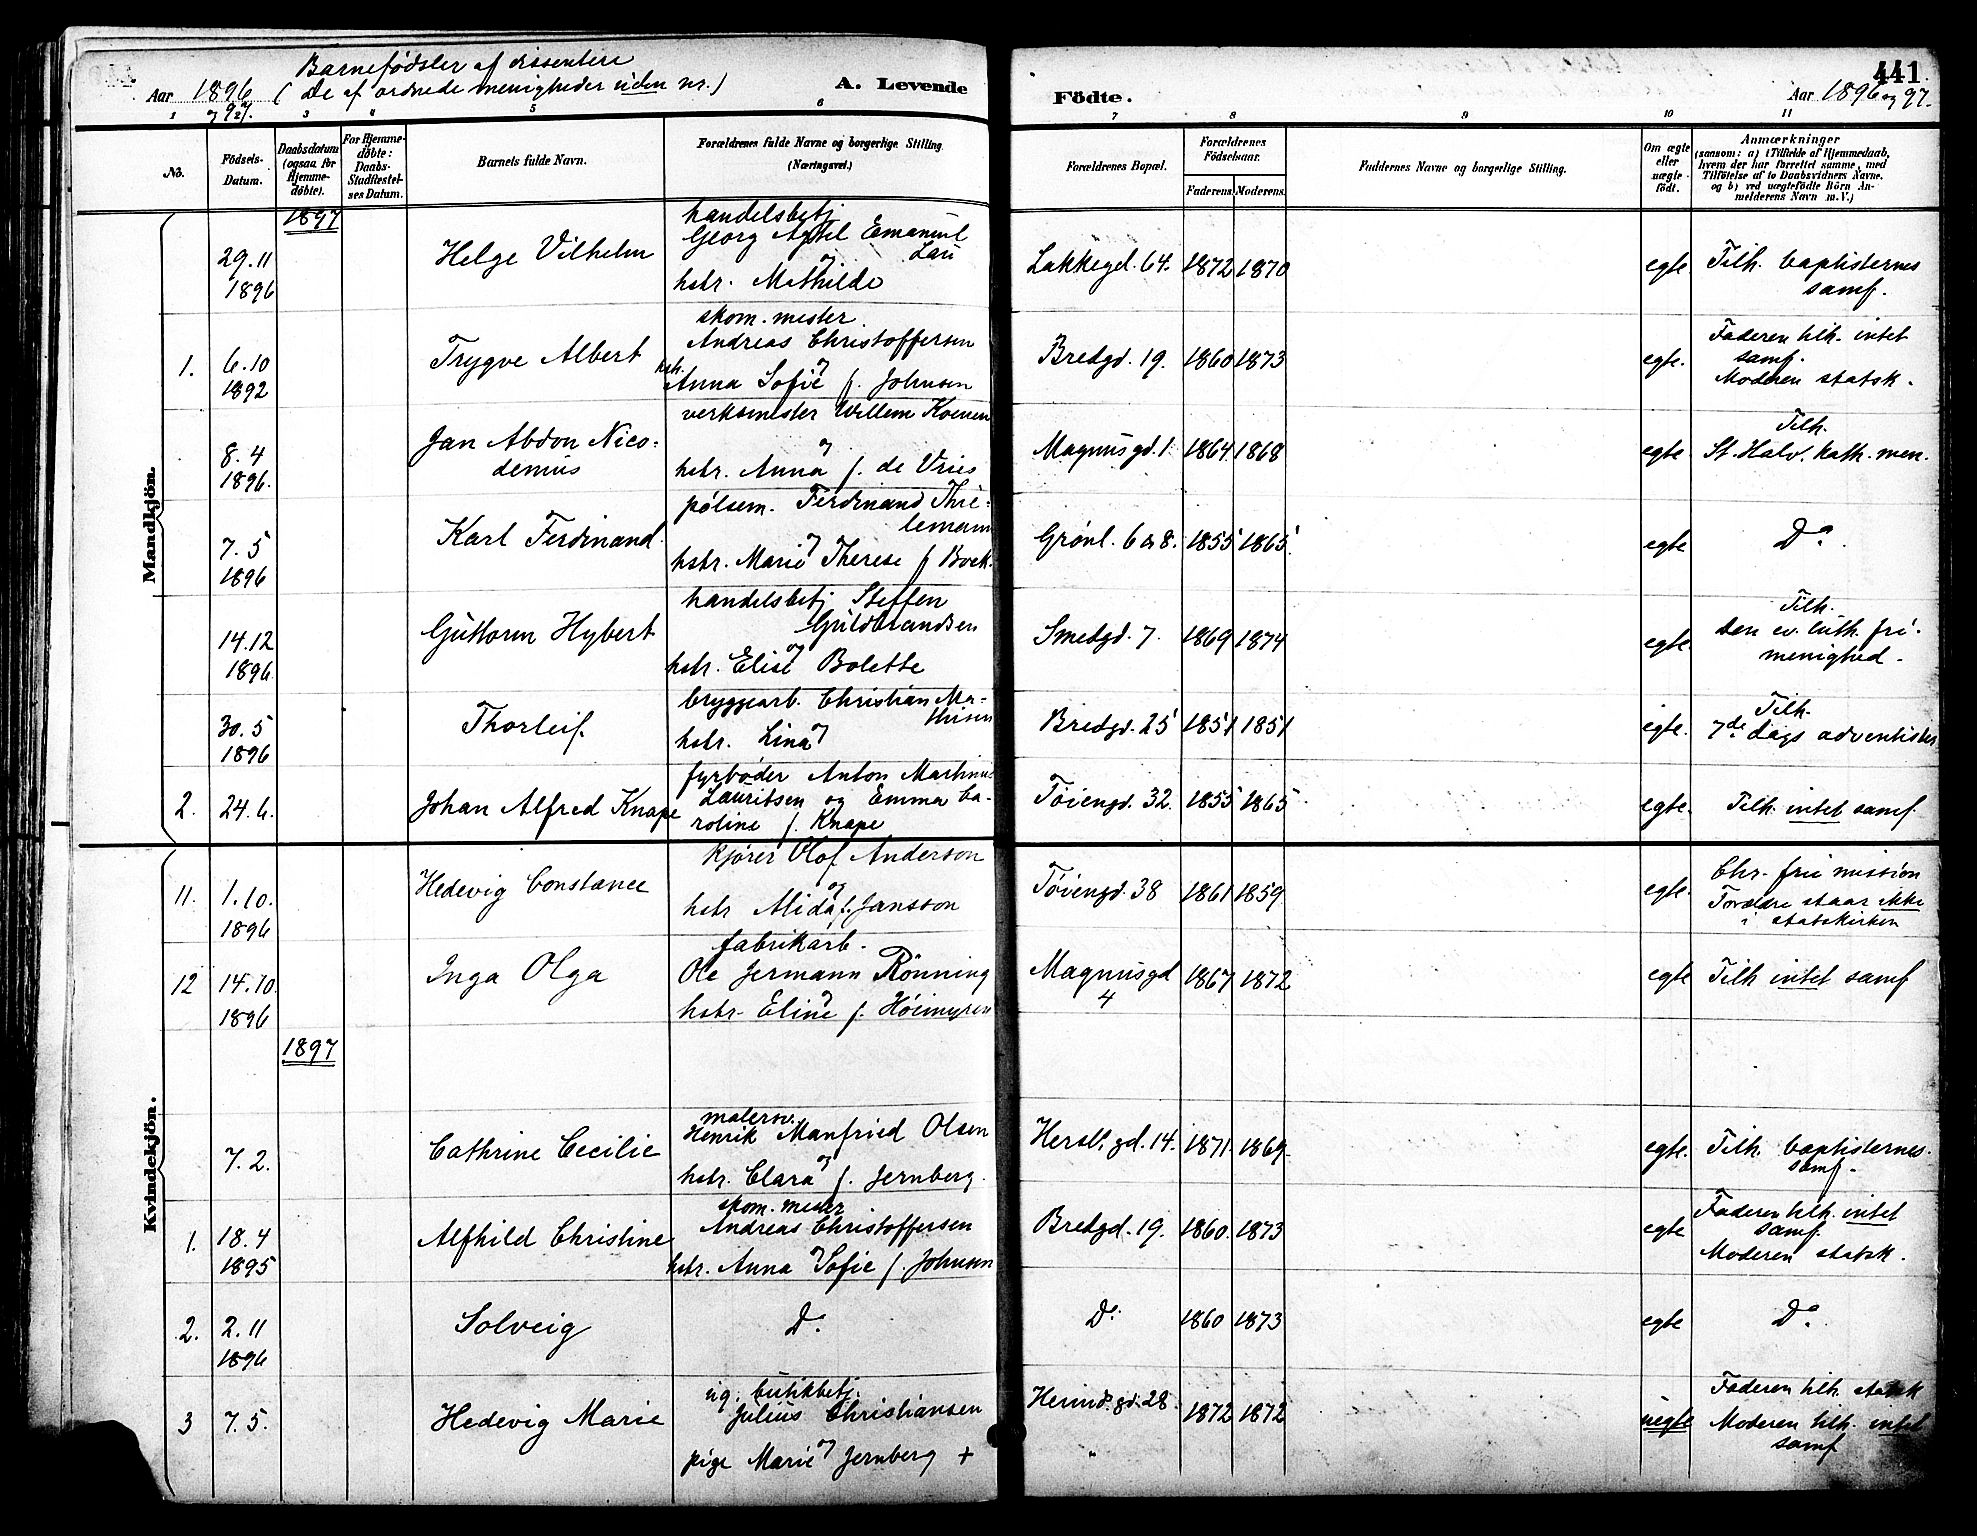 Barnefödsler af dissentere
Aar 1896 (De af ordnede menigheder uden nr.) A. Levende
og 97.
Födte. Aar 1896 og 97.
441
1 2 3 4 5 6 7 8 9 10 11
No.
Födsels-Datum.
Daabsdatum (ogsaa for Hjemmedöbte).
For Hjemmedöbte: Daabs-Stadfæstelses Datum.
Barnets fulde Navn.
Forældrenes fulde Navne og borgerlige Stilling.
(Næringsvei.)
Forældrenes Bopæl.
Forældrenes Födselsaar.
Faderens. Moderens.
Faddernes Navne og borgerlige Stilling.
Om ægte eller uægte födt.
Anmærkninger
(saasom: a) i Tilfælde af Hjemmedaab,
hvem der har forrettet samme, med
Tilföielse af to Daabsvidners Navne,
og b) ved uægtefödte Börn An-
melderens Navn m. V.)
Mandkjön.
1897
29.11 1896 Helge Vilhelm
handelsbetj
Georg Emanuel Lau
og
hstr. Mathilde
Lakkegd. 64. 1872 1870 egte. Tilh. baptisternes samf.
1. 6.10 1892 Trygve Albert
skom. mester
Andreas Christoffersen
og
hstr. Anna Sofie f. Johnsen
Bredgd. 19. 1860 1873 egte. Faderen tilh. intet samf. Moderen statsk.
8.4 1896. Jan Abdon Nicodemus
verksmester Willem Koenen
og
hstr. Anna f. de Vries
Magnusgd. 1 1864 1868 egte. Tilh. St. Halv. kath. men.
7.5 1896 Karl Ferdinand.
pölsem. Ferdinand Thielemann
og
hstr. Marie Therese f Bock.
Grönl. 6 & 8. 1855 1865. egte Do.
14.12 1896. Guttorm Hybert
handelsbetj Steffen Guldbrandsen
og
hstr. Elise Bolette
Smedgd. 7. 1869 1874 egte. Tilh. den ev. luth. frimenighed.
30.5 1896 Thorleif.
bryggearb. Christian Mathisen
og
hstr. Lina
Bredgd. 25 1851 1851 egte. Tilh. 7de dags adventister
2. 24.6. Johan Alfred Knape
fyrböder Anton Martinus
Lauritsen og Emma Caroline f. Knape
Töiengd. 32. 1855 1865 egte. Tilh. intet samf
Kvindekjön.
11. 1.10. 1896 Hedevig Constance
kjörer Olof Anderson
og
hstr Alida f. Jansson
Töiengd. 38 1861 1859. egte. Chr. frie mission Forældre staar ikke i statskirken
12 14.10. 1896 Inga Olga
fabrikarb.
Ole Jermann Rönning
og
hstr. Eline f. Höimyren
Magnusgd 4 1867 1872 egte Tilh intet samf
1897
7.2. Cathrine Cecilie
malersv.
Henrik Manfried Olsen
og
hstr. Clara f. Jernberg.
Hersl. gd. 14. 1871. 1869. egte. Tilh. baptisternes samf.
1. 18.4 1895 Alfhild Christine
skom. mester
Andreas Christoffersen
og
hstr. Anna Sofie f. Johnsen
Bredgd. 19. 1860. 1873 egte Faderen tilh. intet samf. Moderen statsk.
2. 2.11 1896 Solveig Do. Do. 1860 1873 egte Do.
3 7.5. Hedevig Marie
ug. butikbetj.
Julius Christiansen
og
pige Marie Jernberg +
gd. 28. 1872 1872 uegte Faderen tilh. statsk Moderen tilh. intet samf